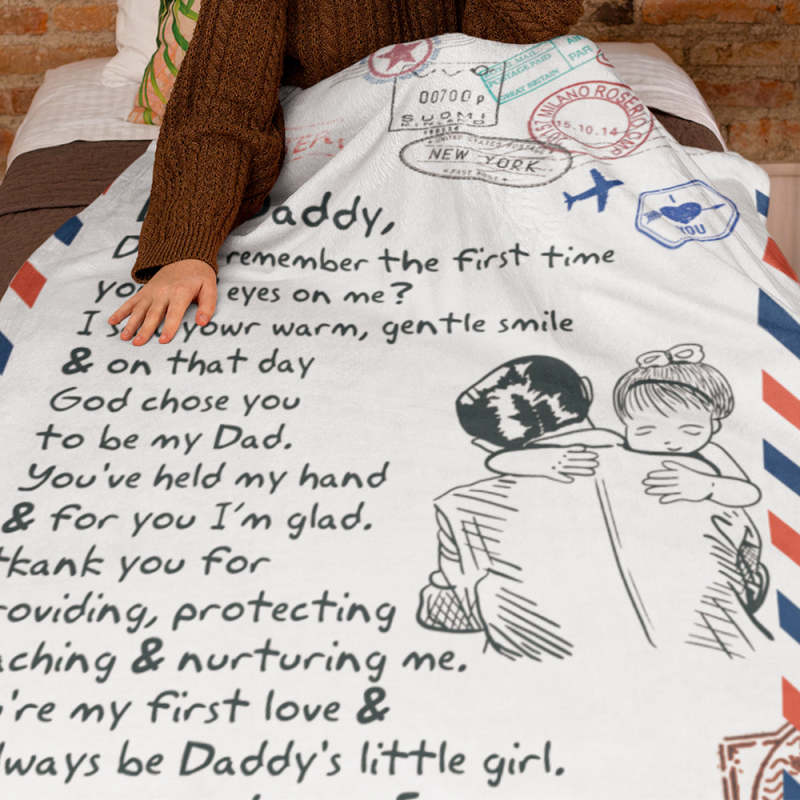 00700 P
SUOMI
FINLAND
POSTAGE PAID
GREAT BRITAIN
AIR
PAR
MILANO ROSERIO
15.10.14
NEW YORK
I
YOU
Daddy,
remember the first time
eyes on me?
I yowr warm, gentle smile
& on that day
God chose you
to be my Dad.
You've held my hand
& for you I'm glad.
thkank you for
roviding, protecting
ching & nurturing me.
're my first love &
lways be Daddy's little girl.